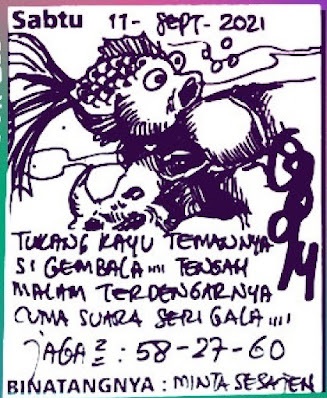 Sabtu 11- SEPT- 2021
TUKANG KAYU TEMANNYA
SI GEMBALA.... TENGAH
MALAM TERDENGARNYA
CUMA SUARA SERI GALA....
JAGA2 : 58-27-60
BINATANGNYA : MINTA SESAJEN